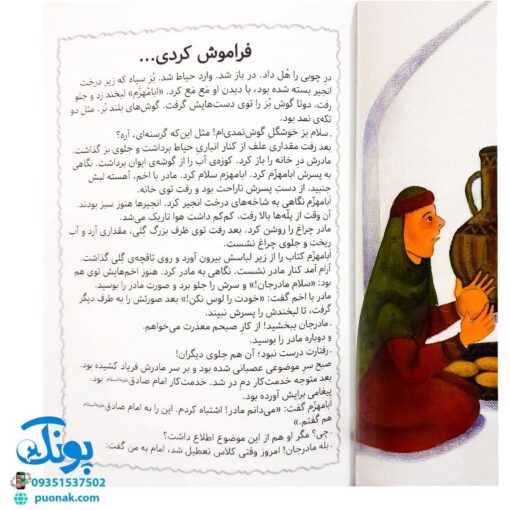 فراموش کردی...
در چوبی را هُل داد. در باز شد. وارد حیاط شد. بُز سیاه که زیر درخت
انجیر بسته شده بود، با دیدن او مَع مَع کرد. «ابامهزَم» لبخند زد و جلو
رفت. دوتا گوش بُز را توی دست‌هایش گرفت. گوش‌های بلند بُز، مثل دو
تکه‌ی نمد بود.
ـ سلام بز خوشگلِ گوش‌نمدی‌ام! مثل این‌که گرسنه‌ای، آره؟
بعد رفت مقداری علف از کنار انباریِ حیاط برداشت و جلوی بز گذاشت.
مادرش در خانه را باز کرد. کوزه‌ی آب را از گوشه‌ی ایوان برداشت. نگاهی
به پسرش ابامهزَم کرد. ابامهزم سلام کرد. مادر با اخم، آهسته لبش
جنبید. از دستِ پسرش ناراحت بود و رفت توی خانه.
ابامهزَم نگاهی به شاخه‌های درخت انجیر کرد. انجیرها هنوز سبز بودند.
آن وقت از پلّه‌ها بالا رفت. کم‌کم داشت هوا تاریک می‌شد.
مادر چراغ را روشن کرد. بعد رفت توی ظرف بزرگ گِلی، مقداری آرد و آب
ریخت و جلوی چراغ نشست.
ابامهزَم کتاب را از زیر لباسش بیرون آورد و روی تاقچه‌ی گِلی گذاشت.
آرام آمد کنار مادر نشست. نگاهی به مادر کرد. هنوز اخم‌هایش توی هم
بود: «سلام مادرجان!» و سرش را جلو برد و صورت مادر را بوسید.
مادر با اخم گفت: «خودت را لوس نکن!» بعد صورتش را به طرف دیگر
گرفت، تا لبخندش را پسرش نبیند.
ـ مادرجان ببخشید! از کارِ صبحم معذرت می‌خواهم.
و دوباره مادر را بوسید.
ـ رفتارت درست نبود؛ آن هم جلوی دیگران!
صبح سرِ موضوعی عصبانی شده بود و بر سر مادرش فریاد کشیده بود.
بعد متوجه خدمت‌کارِ دمِ در شد. خدمت‌کار امام صادق علیه‌السلام بود.
پیغامی برایش آورده بود.
ابامهزَم گفت: «می‌دانم مادر! اشتباه کردم. این را به امام صادق علیه‌السلام
هم گفتم.»
ـ چی؟ مگر او هم از این موضوع اطلاع داشت؟
ـ بله مادرجان! امروز وقتی کلاس تعطیل شد، امام به من گفت:
پونک
09351537502
puonak.com